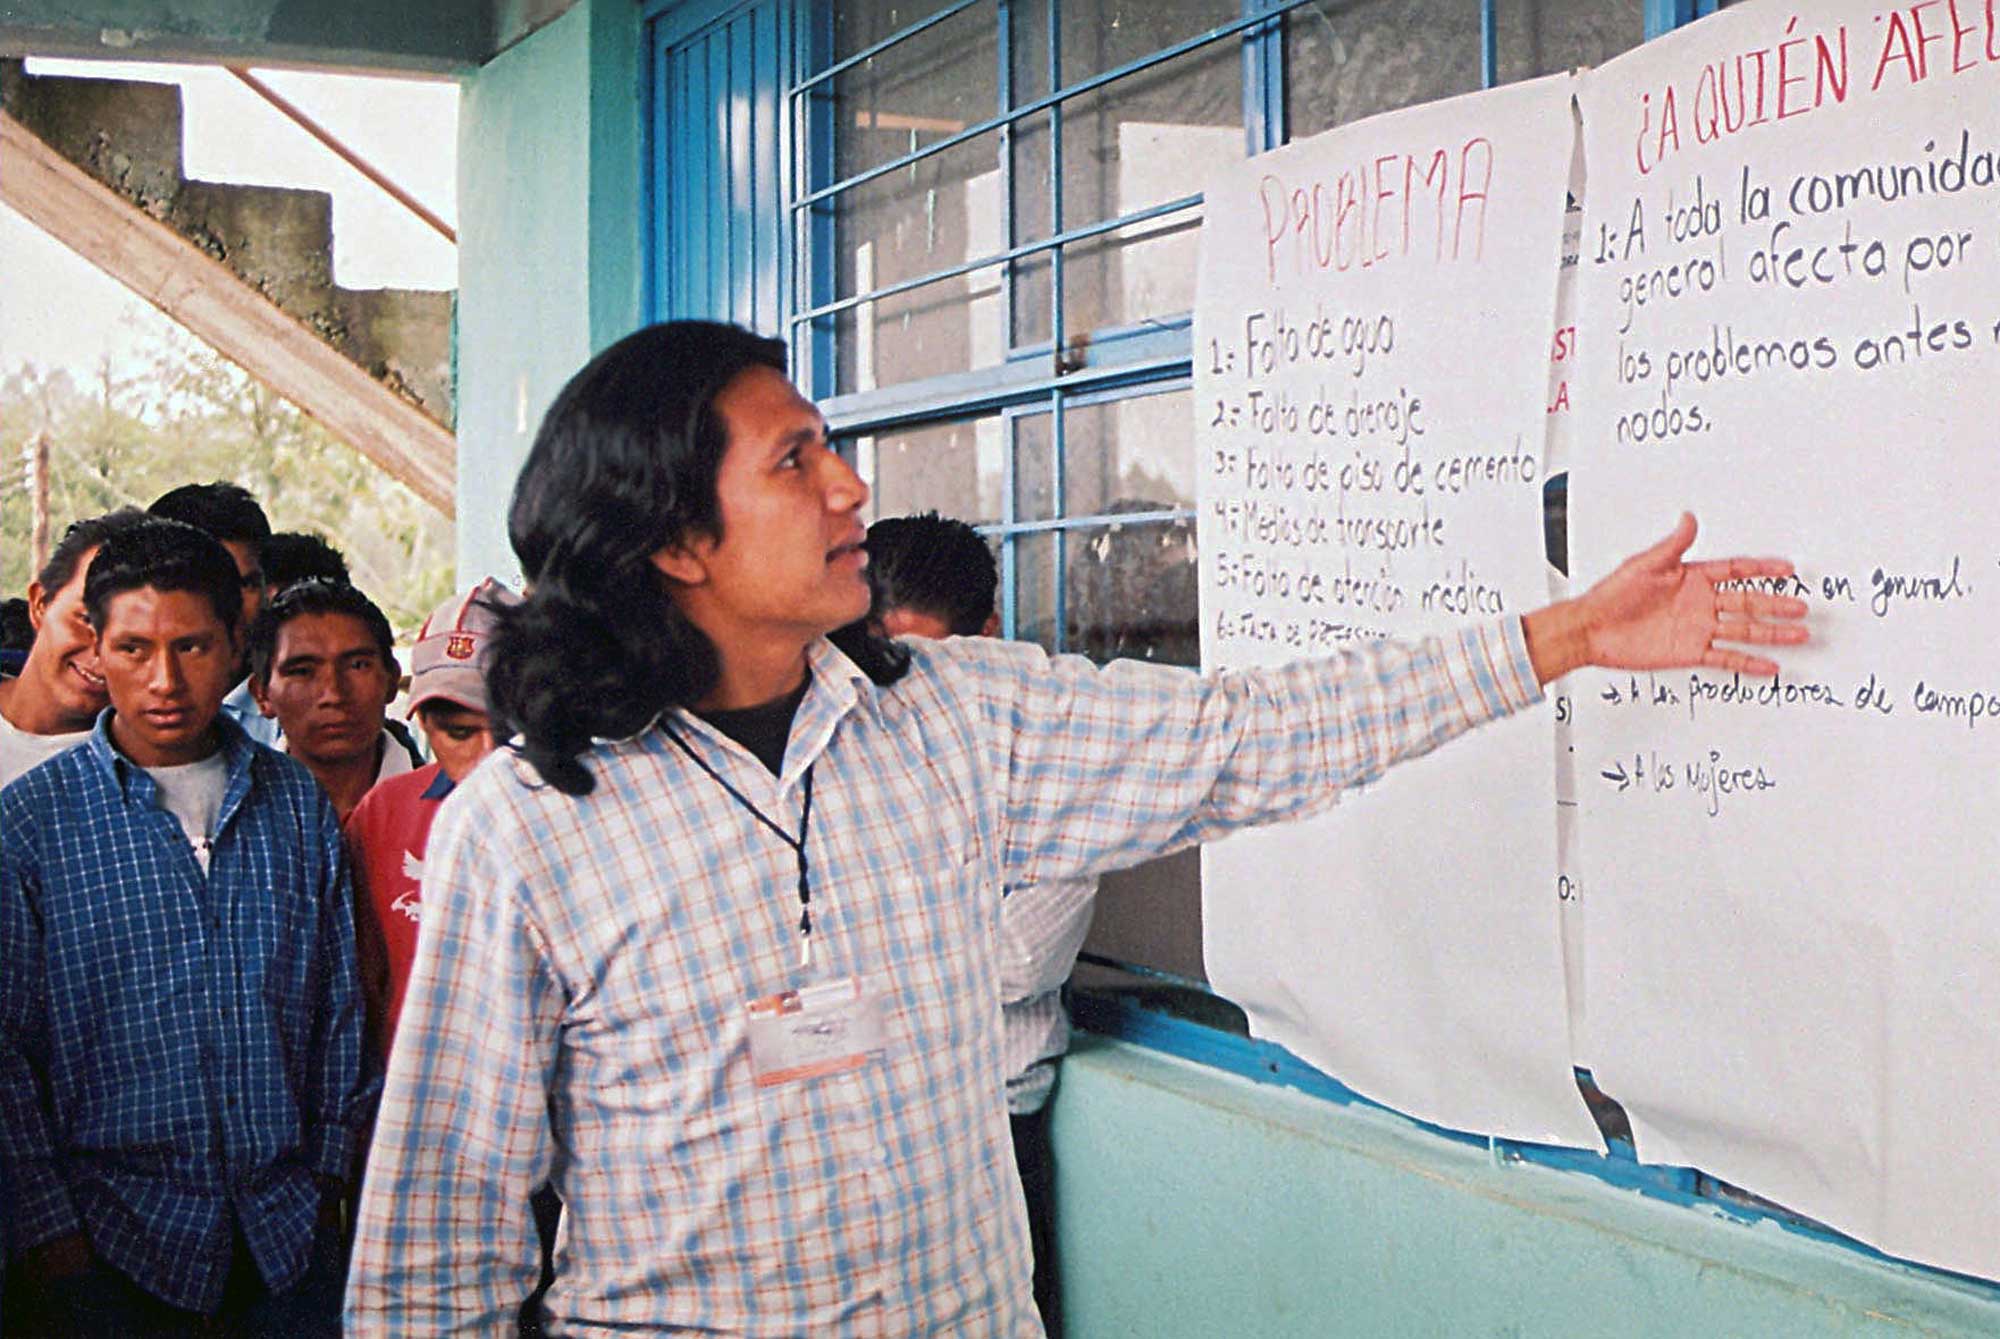 PROBLEMA
1= Falta de agua
2= Falta de drenaje
3= Falta de piso de cemento
4= Medios de transporte
5= Falta de atención médica
6= FALTA DE
¿A QUIÉN AFEC
1: A toda la comunidad
general afecta por
los problemas antes
nados.
en general.
→ A los productores de campo
→ A las Mujeres